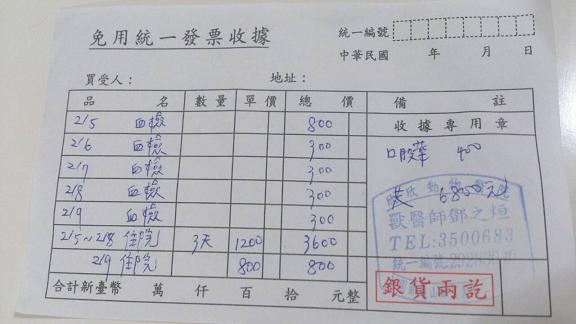 免用統一發票收據
統一編號
中華民國 年 月 日
買受人： 地址：
品名 數量 單價 總價 備註
收據專用章
2/5 血檢 800
2/6 血檢 300
2/7 血檢 300
2/8 血檢 300
2/9 血檢 300
2/5~2/8 住院 3天 1200 3600
2/9 住院 800 800
400
6800元
動物
獸醫師鄧之烜
TEL:3500683
統一編號
銀貨兩訖
合計新臺幣 萬 仟 百 拾 元整